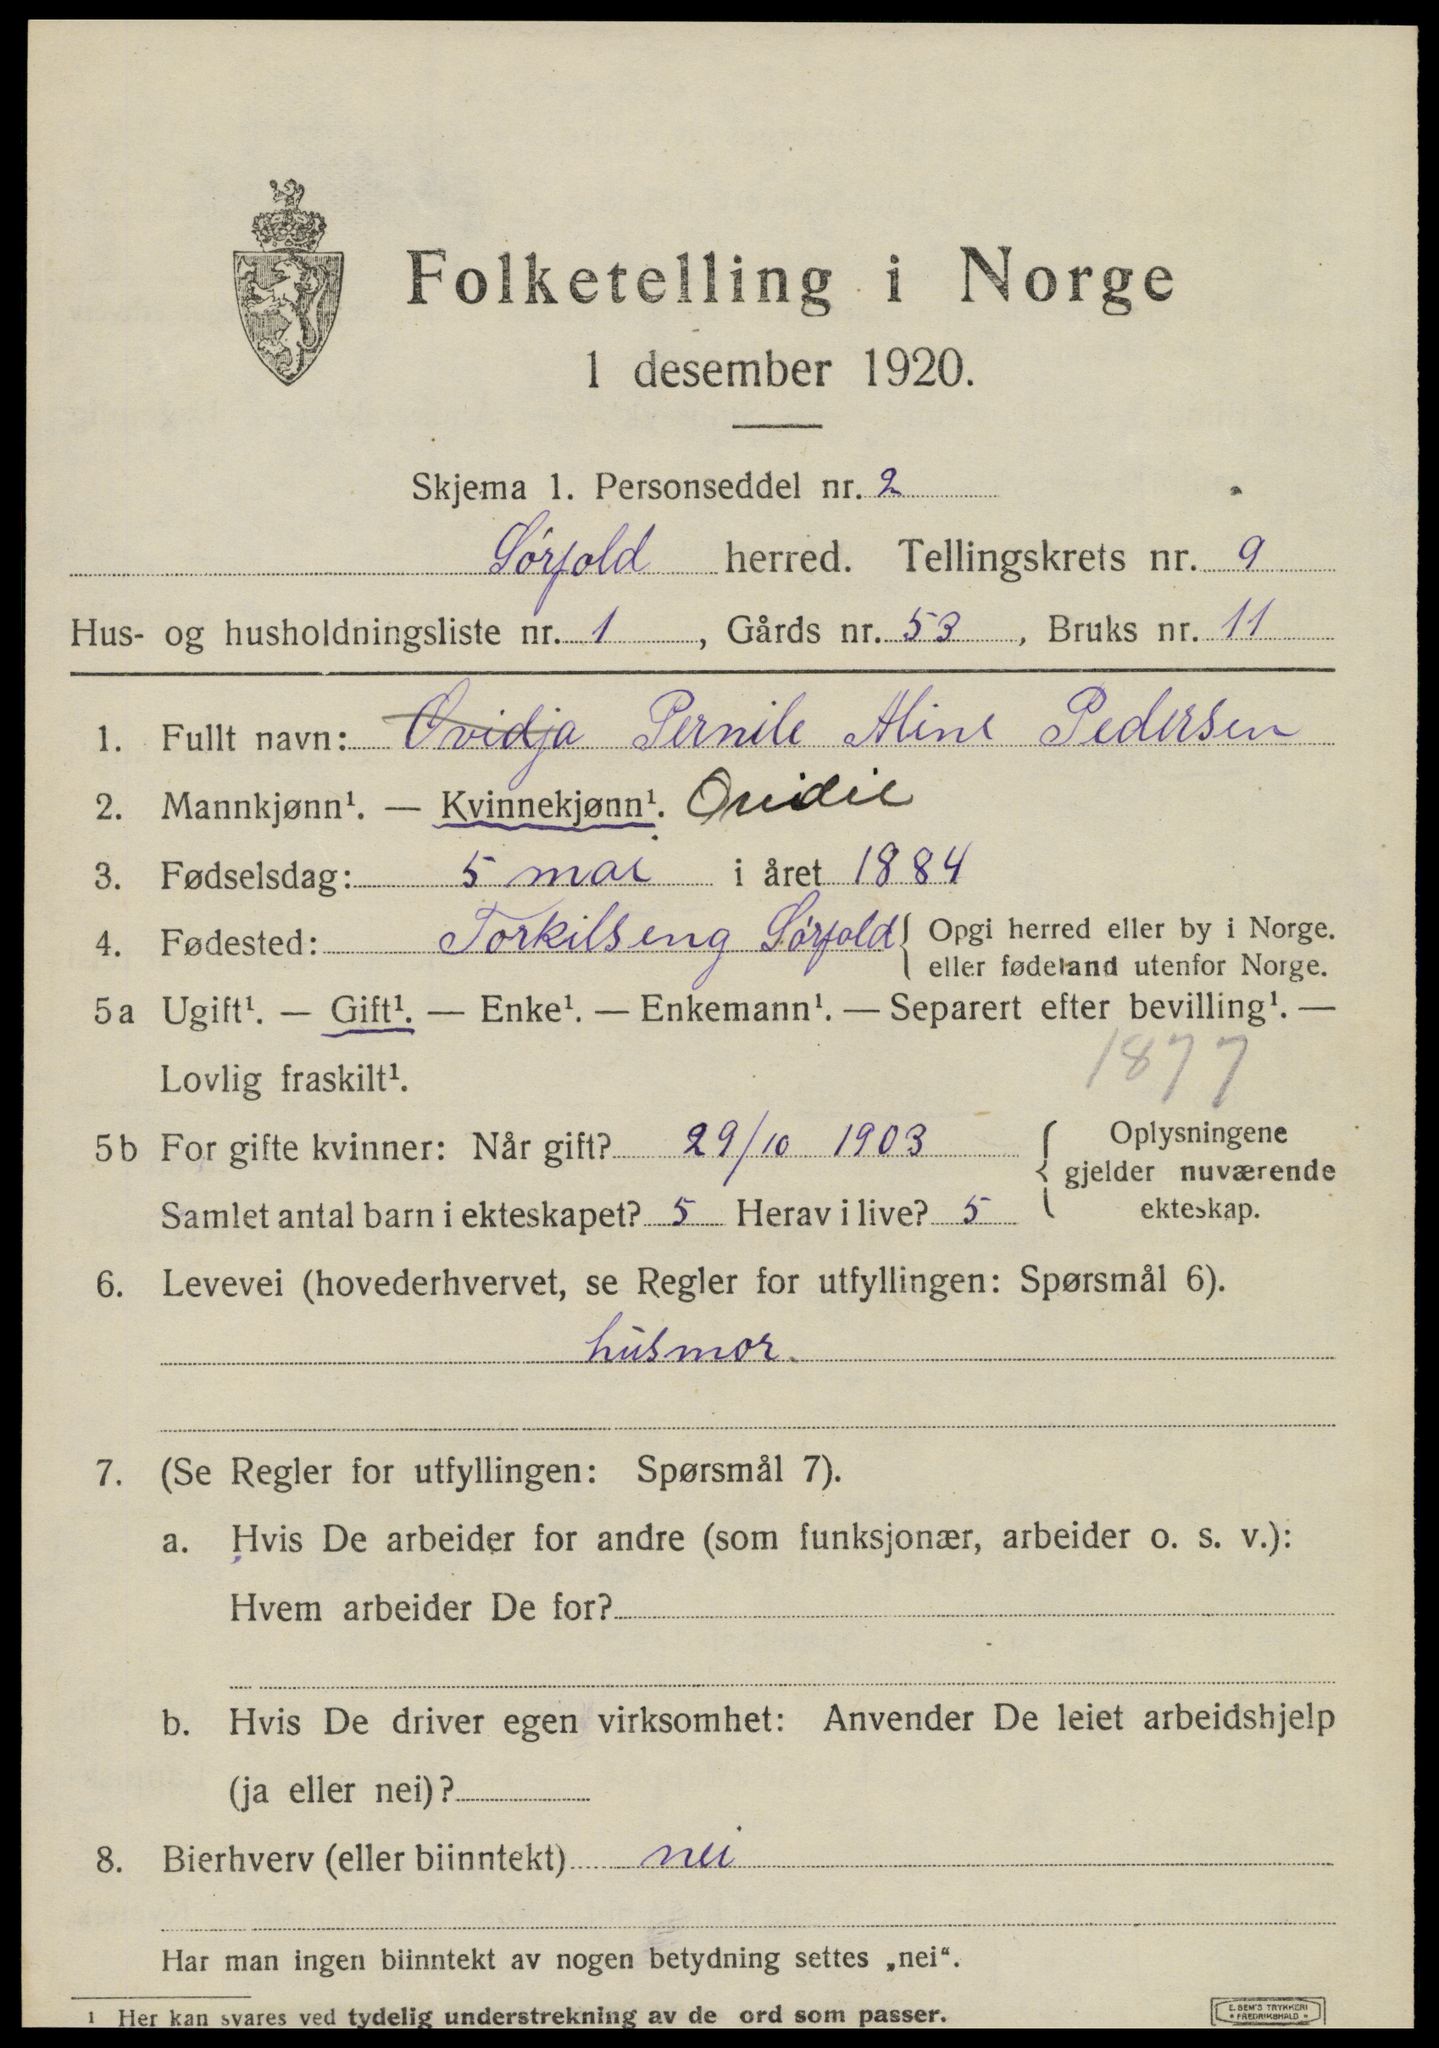 Folketelling i Norge
1 desember 1920.
Skjema 1. Personseddel nr. 2
Sørfold herred. Tellingskrets nr. 9
Hus- og husholdningsliste nr. 1, Gårds nr. 53, Bruks nr. 11
1. Fullt navn: Ovidja Pernile Aline Pedersen
2. Mannkjønn¹. — Kvinnekjønn¹. Ovidie
3. Fødselsdag: 5 mai i året 1884
4. Fødested: Torkilseng Sørfold { Opgi herred eller by i Norge.
eller fødeland utenfor Norge.
5a Ugift¹. — Gift¹. — Enke¹. — Enkemann¹. — Separert efter bevilling¹. —
Lovlig fraskilt¹. 1877
5b For gifte kvinner: Når gift? 29/10 1903
Samlet antal barn i ekteskapet? 5 Herav i live? 5
{ Oplysningene
gjelder nuværende
ekteskap.
6. Levevei (hovederhvervet, se Regler for utfyllingen: Spørsmål 6).
husmor.
7. (Se Regler for utfyllingen: Spørsmål 7).
a. Hvis De arbeider for andre (som funksjonær, arbeider o. s. v.):
Hvem arbeider De for?
b. Hvis De driver egen virksomhet: Anvender De leiet arbeidshjelp
(ja eller nei)?
8. Bierhverv (eller biinntekt) nei
Har man ingen biinntekt av nogen betydning settes „nei“.
¹ Her kan svares ved tydelig understrekning av de ord som passer.
E. SEM'S TRYKKERI
* FREDRIKSHALD *